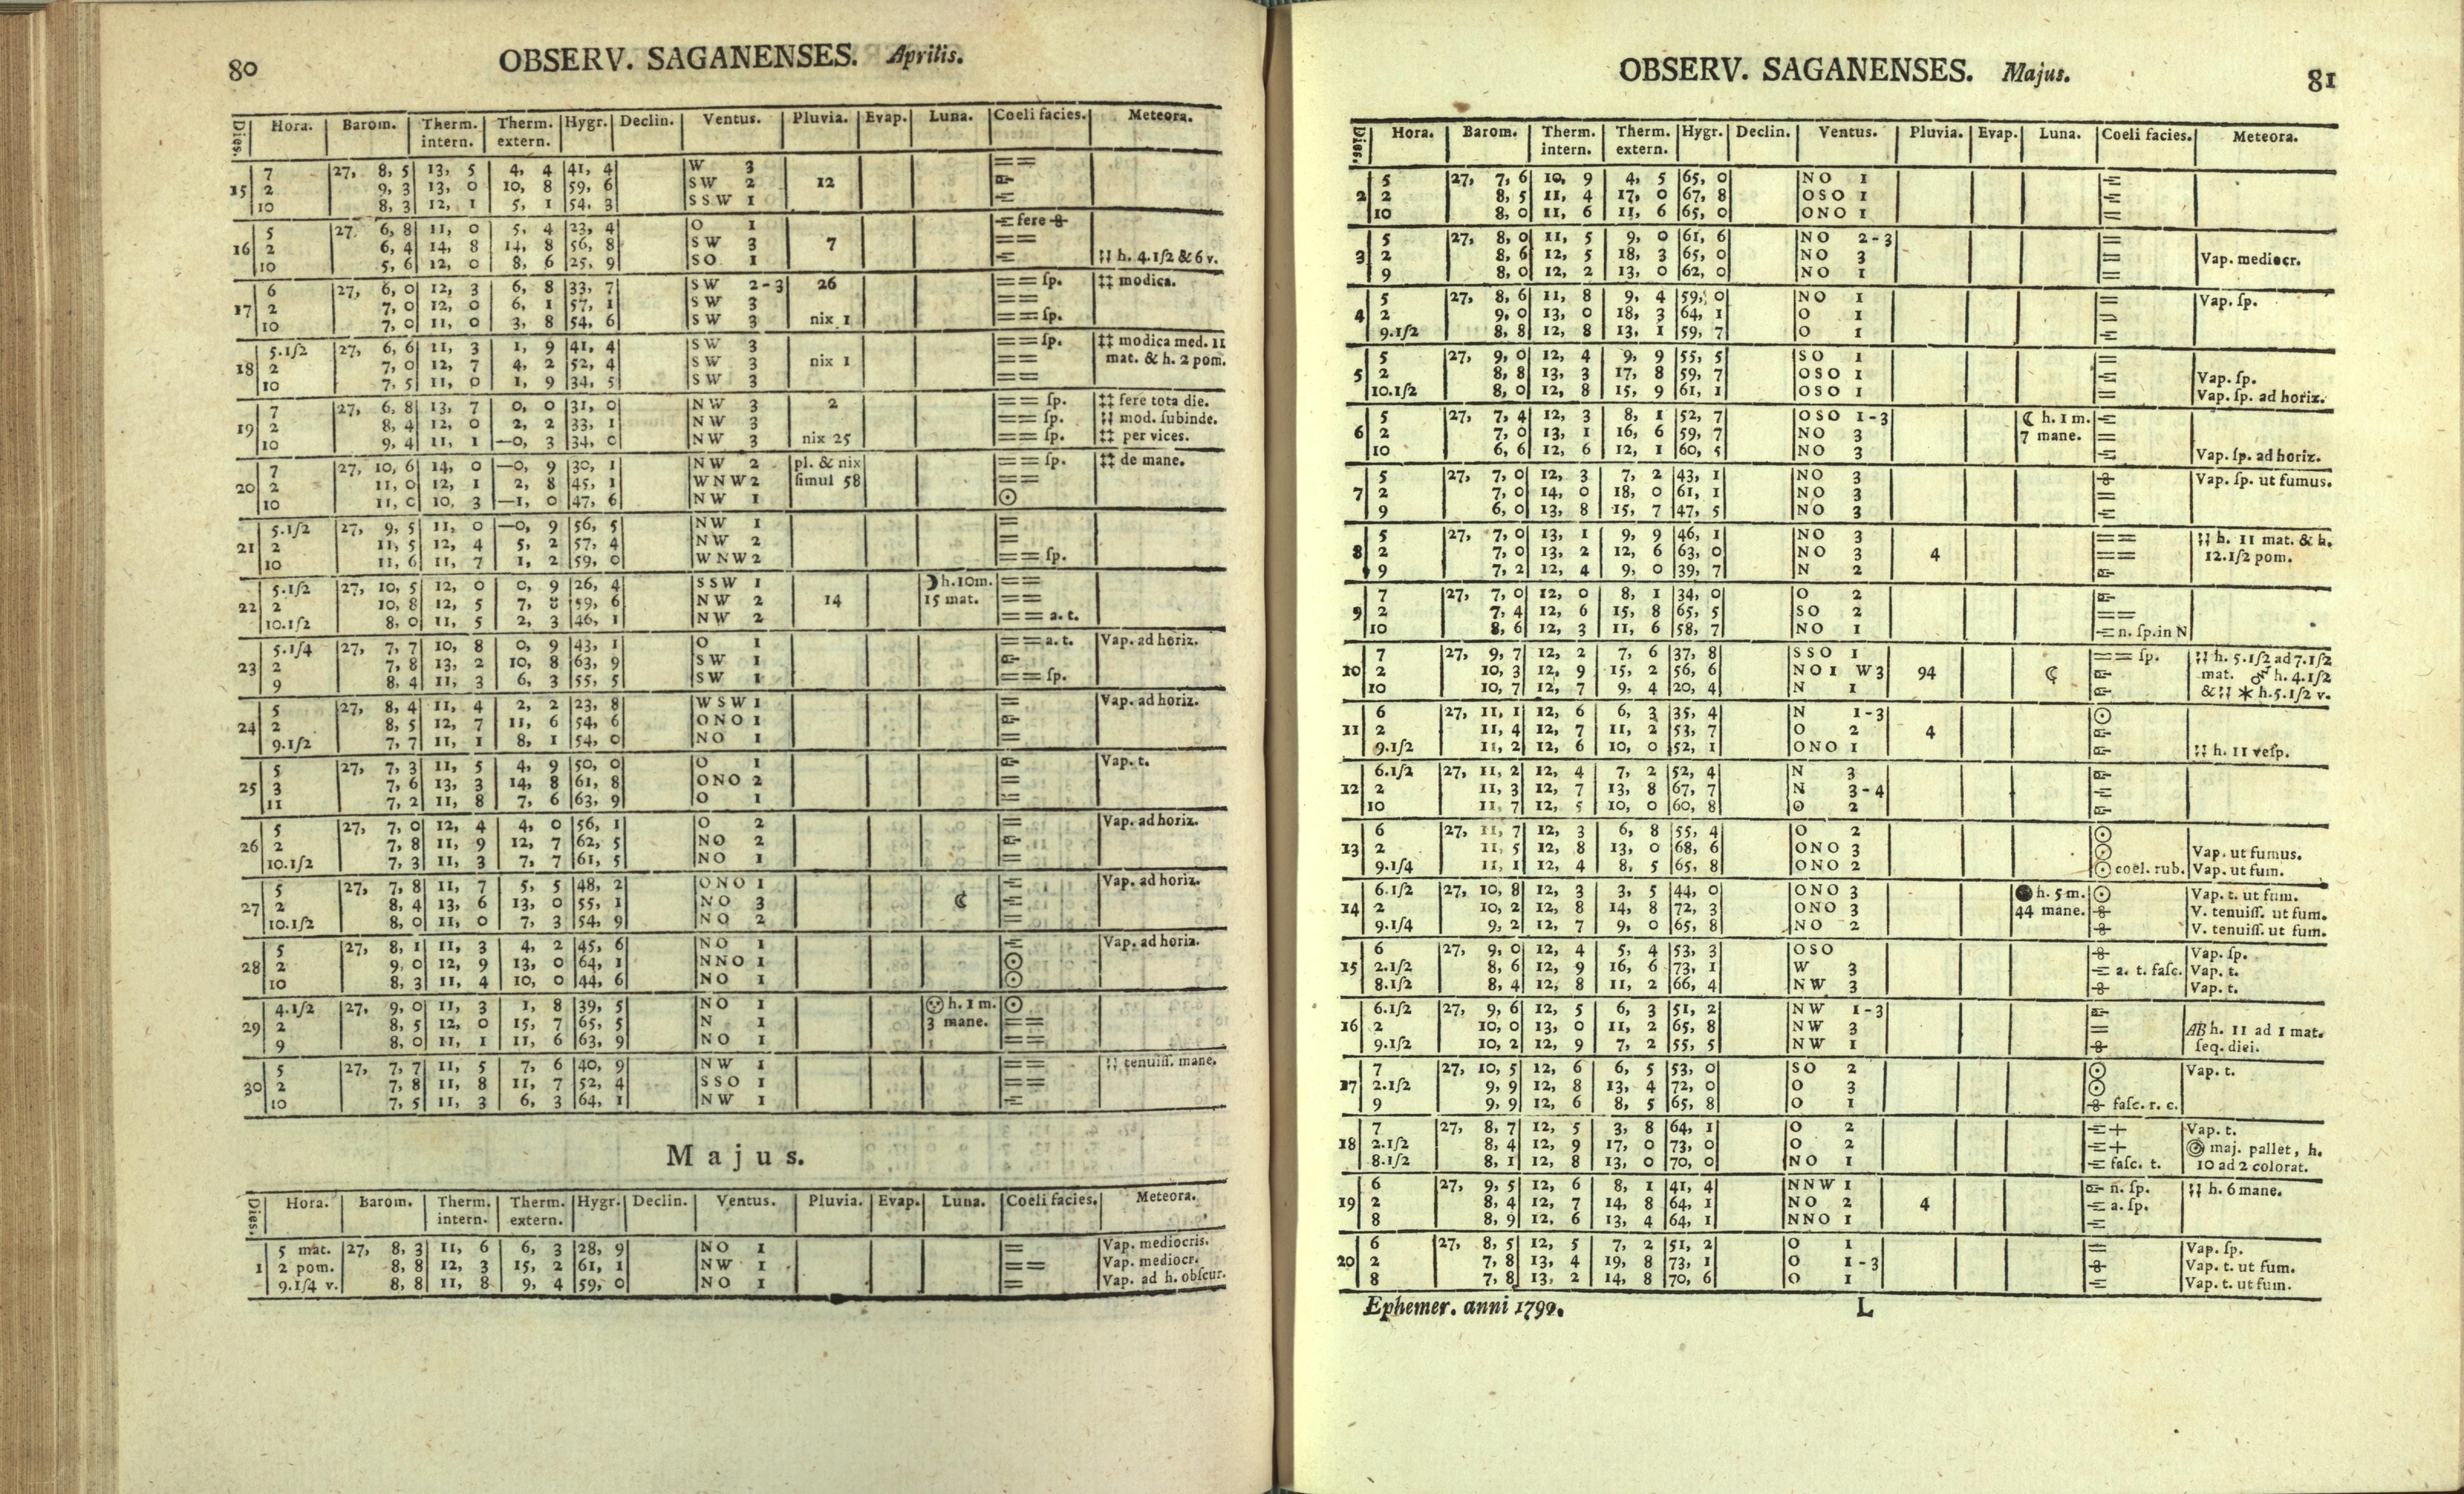 80
OBSERV. SAGANENSES. Aprilis.
Dies. Hora. Barom. Therm. intern. Therm. extern. Hygr. Declin. Ventus. Pluvia. Evap. Luna. Coeli facies. Meteora.
7 27, 8, 5 13, 5 4, 4 41, 4 W 3 ==
15 2 9, 3 13, 0 10, 8 59, 6 SW 2 12
10 8, 3 12, 1 5, 1 54, 3 SSW 1
5 27, 6, 8 11, 0 5, 4 23, 4 O 1 fere
16 2 6, 4 14, 8 14, 8 56, 8 SW 3 7 ==
10 5, 6 12, 0 8, 6 25, 9 SO 1 h. 4.1/2 & 6 v.
6 27, 6, 0 12, 3 6, 8 33, 7 SW 2-3 26 == ſp. ‡‡ modica.
17 2 7, 0 12, 0 6, 1 57, 1 SW 3 ==
10 7, 0 11, 0 3, 8 54, 6 SW 3 nix 1 == ſp.
5.1/2 27, 6, 6 11, 3 1, 9 41, 4 SW 3 == ſp. ‡‡ modica med. 11
18 2 7, 0 12, 7 4, 2 52, 4 SW 3 nix 1 == mat. & h. 2 pom.
10 7, 5 11, 0 1, 9 34, 5 SW 3 ==
7 27, 6, 8 13, 7 0, 0 31, 0 NW 3 2 == ſp. ‡‡ fere tota die.
19 2 8, 4 12, 0 2, 2 33, 1 NW 3 == ſp. mod. ſubinde.
10 9, 4 11, 1 —0, 3 34, 0 NW 3 nix 25 == ſp. ‡‡ per vices.
7 27, 10, 6 14, 0 —0, 9 30, 1 NW 2 pl. & nix == ſp. ‡‡ de mane.
20 2 11, 0 12, 1 2, 8 45, 1 WNW 2 ſimul 58 ==
10 11, 0 10, 3 —1, 0 47, 6 NW 1 ☉
5.1/2 27, 9, 5 11, 0 —0, 9 56, 5 NW 1 =
21 2 11, 5 12, 4 5, 2 57, 4 NW 2 =
10 11, 6 11, 7 1, 2 59, 0 WNW 2 == ſp.
5.1/2 27, 10, 5 12, 0 0, 9 26, 4 SSW 1 ☽ h. 10 m. ==
22 2 10, 8 12, 5 7, 8 59, 6 NW 2 14 15 mat. ==
10.1/2 8, 0 11, 5 2, 3 46, 1 NW 2 == a. t.
5.1/4 27, 7, 7 10, 8 0, 9 43, 1 O 1 == a. t. Vap. ad horiz.
23 2 7, 8 13, 2 10, 8 63, 9 SW 1
9 8, 4 11, 3 6, 3 55, 5 SW 1 == ſp.
5 27, 8, 4 11, 4 2, 2 23, 8 WSW 1 = Vap. ad horiz.
24 2 8, 5 12, 7 11, 6 54, 6 ONO 1
9.1/2 7, 7 11, 1 8, 1 54, 0 NO 1 =
5 27, 7, 3 11, 5 4, 9 50, 0 O 1 Vap. t.
25 3 7, 6 13, 3 14, 8 61, 8 ONO 2 =
11 7, 2 11, 8 7, 6 63, 9 O 1
5 27, 7, 0 12, 4 4, 0 56, 1 O 2 = Vap. ad horiz.
26 2 7, 8 11, 9 12, 7 62, 5 NO 2
10.1/2 7, 3 11, 3 7, 7 61, 5 NO 1 =
5 27, 7, 8 11, 7 5, 5 48, 2 ONO 1 Vap. ad horiz.
27 2 8, 4 13, 6 13, 0 55, 1 NO 3 ☾
10.1/2 8, 0 11, 0 7, 3 54, 9 NO 2 =
5 27, 8, 1 11, 3 4, 2 45, 6 NO 1 Vap. ad horiz.
28 2 9, 0 12, 9 13, 0 64, 1 NNO 1 ☉
10 8, 3 11, 4 10, 0 44, 6 NO 1 ☉
4.1/2 27, 9, 0 11, 3 1, 8 39, 5 NO 1 h. 1 m. ☉
29 2 8, 5 12, 0 15, 7 65, 5 N 1 3 mane. ==
9 8, 0 11, 1 11, 6 63, 9 NO 1 ==
5 27, 7, 7 11, 5 7, 6 40, 9 NW 1 == tenuiſſ. mane.
30 2 7, 8 11, 8 11, 7 52, 4 SSO 1 ==
10 7, 5 11, 3 6, 3 64, 1 NW 1
Majus.
Dies. Hora. Barom. Therm. intern. Therm. extern. Hygr. Declin. Ventus. Pluvia. Evap. Luna. Coeli facies. Meteora.
5 mat. 27, 8, 3 11, 6 6, 3 28, 9 NO 1 = Vap. mediocris.
1 2 pom. 8, 8 12, 3 15, 2 61, 1 NW 1 == Vap. mediocr.
9.1/4 v. 8, 8 11, 8 9, 4 59, 0 NO 1 = Vap. ad h. obſcur.
OBSERV. SAGANENSES. Majus.
81
Dies. Hora. Barom. Therm. intern. Therm. extern. Hygr. Declin. Ventus. Pluvia. Evap. Luna. Coeli facies. Meteora.
5 27, 7, 6 10, 9 4, 5 65, 0 NO 1
2 2 8, 5 11, 4 17, 0 67, 8 OSO 1
10 8, 0 11, 6 11, 6 65, 0 ONO 1
5 27, 8, 0 11, 5 9, 0 61, 6 NO 2-3 =
3 2 8, 6 12, 5 18, 3 65, 0 NO 3 = Vap. mediocr.
9 8, 0 12, 2 13, 0 62, 0 NO 1 =
5 27, 8, 6 11, 8 9, 4 59, 0 NO 1 = Vap. ſp.
4 2 9, 0 13, 0 18, 3 64, 1 O 1
9.1/2 8, 8 12, 8 13, 1 59, 7 O 1
5 27, 9, 0 12, 4 9, 9 55, 5 SO 1 =
5 2 8, 8 13, 3 17, 8 59, 7 OSO 1 Vap. ſp.
10.1/2 8, 0 12, 8 15, 9 61, 1 OSO 1 Vap. ſp. ad horiz.
5 27, 7, 4 12, 3 8, 1 52, 7 OSO 1-3 ☾ h. 1 m.
6 2 7, 0 13, 1 16, 6 59, 7 NO 3 7 mane. =
10 6, 6 12, 6 12, 1 60, 5 NO 3 Vap. ſp. ad horiz.
5 27, 7, 0 12, 3 7, 2 43, 1 NO 3 Vap. ſp. ut fumus.
7 2 7, 0 14, 0 18, 0 61, 1 NO 3 =
9 6, 0 13, 8 15, 7 47, 5 NO 3
5 27, 7, 0 13, 1 9, 9 46, 1 NO 3 == h. 11 mat. & h.
8 2 7, 0 13, 2 12, 6 63, 0 NO 3 4 == 12.1/2 pom.
9 7, 2 12, 4 9, 0 39, 7 N 2
7 27, 7, 0 12, 0 8, 1 34, 0 O 2
9 2 7, 4 12, 6 15, 8 65, 5 SO 2 ==
10 8, 6 12, 3 11, 6 58, 7 NO 1 n. ſp. in N
7 27, 9, 7 12, 2 7, 6 37, 8 SSO 1 == ſp. h. 5.1/2 ad 7.1/2
10 2 10, 3 12, 9 15, 2 56, 6 NO 1 W 3 94 ☾ mat. h. 4.1/2
10 10, 7 12, 7 9, 4 20, 4 N 1 & h. 5.1/2 v.
6 27, 11, 1 12, 6 6, 3 35, 4 N 1-3 ☉
11 2 11, 4 12, 7 11, 2 53, 7 O 2 4
9.1/2 11, 2 12, 6 10, 0 52, 1 ONO 1 h. 11 veſp.
6.1/2 27, 11, 2 12, 4 7, 2 52, 4 N 3
12 2 11, 3 12, 7 13, 8 67, 7 N 3-4
10 11, 7 12, 5 10, 0 60, 8 O 2
6 27, 11, 7 12, 3 6, 8 55, 4 O 2 ☉
13 2 11, 5 12, 8 13, 0 68, 6 ONO 3 ☉ Vap. ut fumus.
9.1/4 11, 1 12, 4 8, 5 65, 8 ONO 2 ☉ coel. rub. Vap. ut fum.
6.1/2 27, 10, 8 12, 3 3, 5 44, 0 ONO 3 ● h. 5 m. ☉ Vap. t. ut fum.
14 2 10, 2 12, 8 14, 8 72, 3 ONO 3 44 mane. V. tenuiſſ. ut fum.
9.1/4 9, 2 12, 7 9, 0 65, 8 NO 2 V. tenuiſſ. ut fum.
6 27, 9, 0 12, 4 5, 4 53, 3 OSO Vap. ſp.
15 2.1/2 8, 6 12, 9 16, 6 73, 1 W 3 a. t. faſc. Vap. t.
8.1/2 8, 4 12, 8 11, 2 66, 4 NW 3 Vap. t.
6.1/2 27, 9, 6 12, 5 6, 3 51, 2 NW 1-3
16 2 10, 0 13, 0 11, 2 65, 8 NW 3 = AB h. 11 ad 1 mat.
9.1/2 10, 2 12, 9 7, 2 55, 5 NW 1 ſeq. diei.
7 27, 10, 5 12, 6 6, 5 53, 0 SO 2 ☉ Vap. t.
17 2.1/2 9, 9 12, 8 13, 4 72, 0 O 3 ☉
9 9, 9 12, 6 8, 5 65, 8 O 1 faſc. r. c.
7 27, 8, 7 12, 5 3, 8 64, 1 O 2 + Vap. t.
18 2.1/2 8, 4 12, 9 17, 0 73, 0 O 2 + maj. pallet, h.
8.1/2 8, 1 12, 8 13, 0 70, 0 NO 1 faſc. t. 10 ad 2 colorat.
6 27, 9, 5 12, 6 8, 1 41, 4 NNW 1 n. ſp. h. 6 mane.
19 2 8, 4 12, 7 14, 8 64, 1 NO 2 4 a. ſp.
8 8, 9 12, 6 13, 4 64, 1 NNO 1
6 27, 8, 5 12, 5 7, 2 51, 2 O 1 = Vap. ſp.
20 2 7, 8 13, 4 19, 8 73, 1 O 1-3 Vap. t. ut fum.
8 7, 8 13, 2 14, 8 70, 6 O 1 Vap. t. ut fum.
Ephemer. anni 1790. L